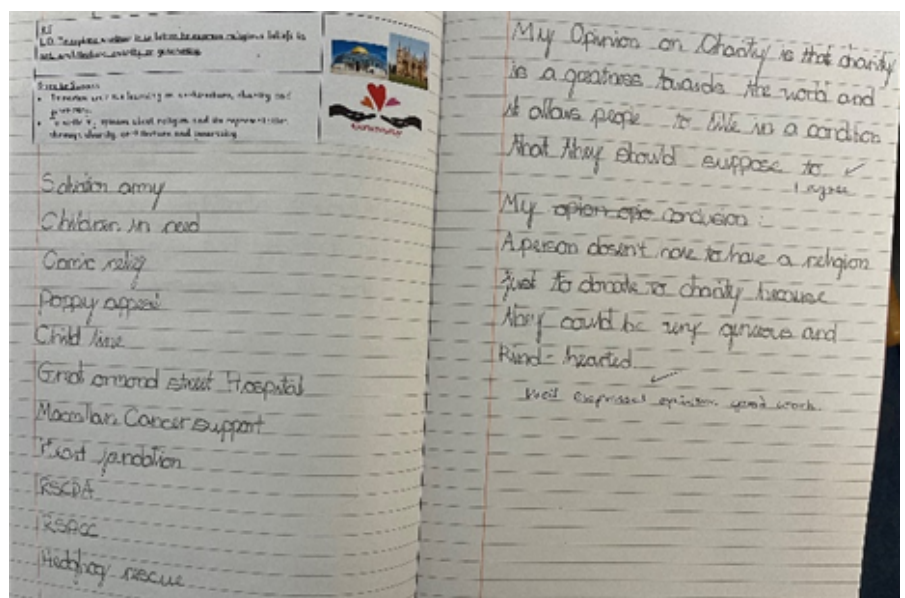 RE
L.O. To explain whether it is better to express religious beliefs in
art, architecture, charity or generosity
Steps to Success
architecture, charity and
generosity.
about religion and its representation
through charity, architecture and generosity
Salvation army
Children in need
Comic relief
Poppy appeal
Child line
Great ormond street Hospital
Macmillan Cancer support
Heart
RSCDA
RSPCC
Hedghog rescue
My Opinion on Charity is that charity
is a greatness towards the world and
it allows people to live in a condition
that they should suppose to ✓
I agree
My opion opie conclusion:
A person dosen't have to have a religion
just to donate to charity because
they could be very generous and
Kind-hearted.
✓
Well expressed opinion good work.